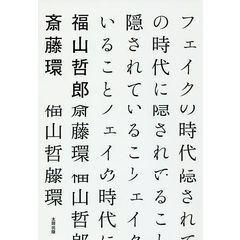 フェイクの時代隠されて
の時代に隠されているこ
隠されているこ ェイク
いることフェイクの時代
福山哲郎斎藤環福山哲郎
斎藤環 福山哲藤環
太田出版